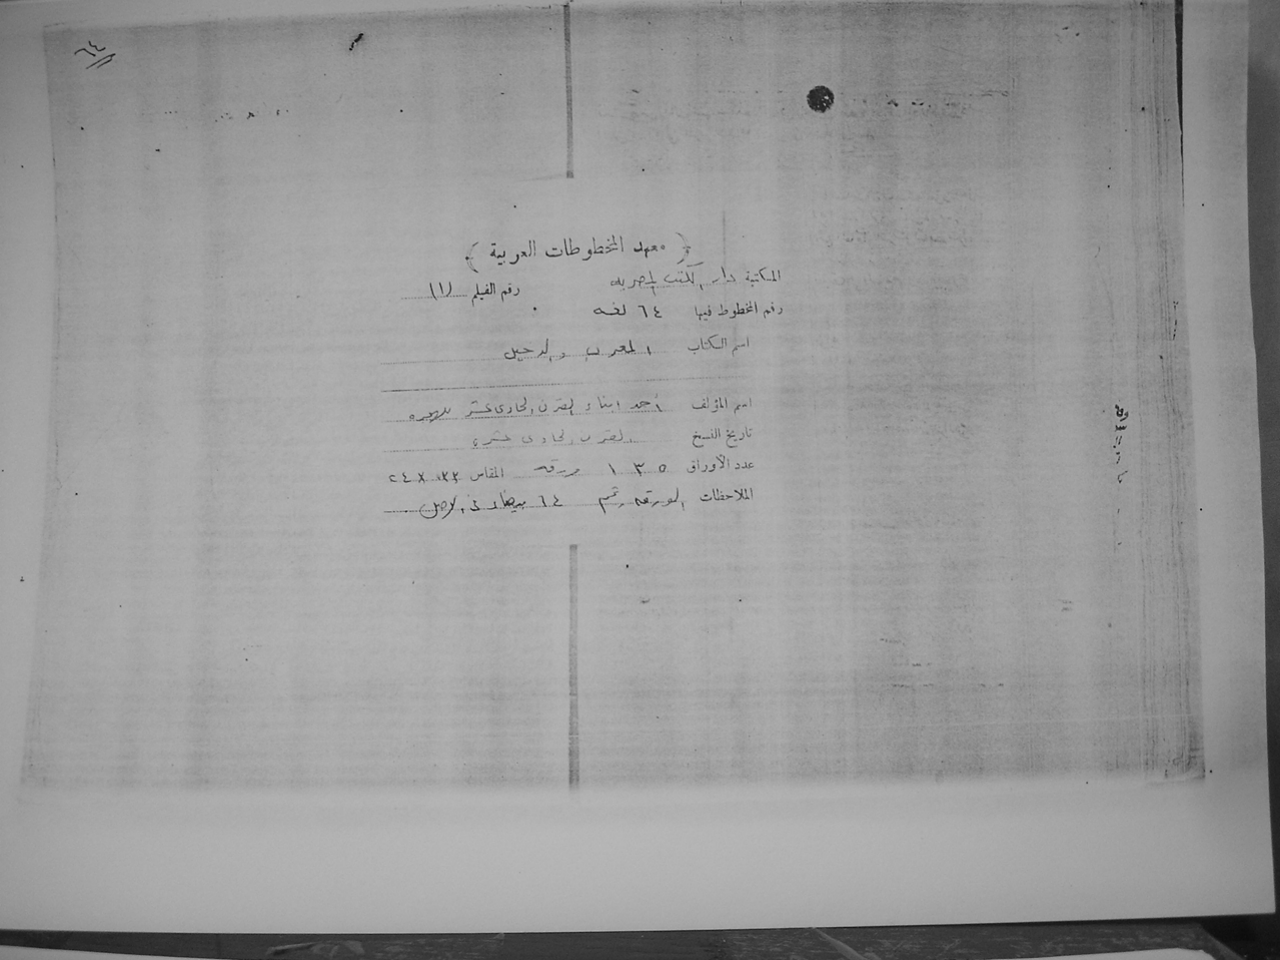 ٦٤
﴿ معهد المخطوطات العربية ﴾
المكتبة دار الكتب المصرية
رقم الفيلم
رقم المخطوط فيها ٦٤ لغة
اسم الكتاب المعرب والدخيل
اسم المؤلف أحد أبناء القرن الحادى عشر للهجرة
تاريخ النسخ القرن الحادى عشر
عدد الأوراق ١٣٥ ورقة المقاس
الملاحظات الورقة رقم ٦٤ بيضاء فى الأصل